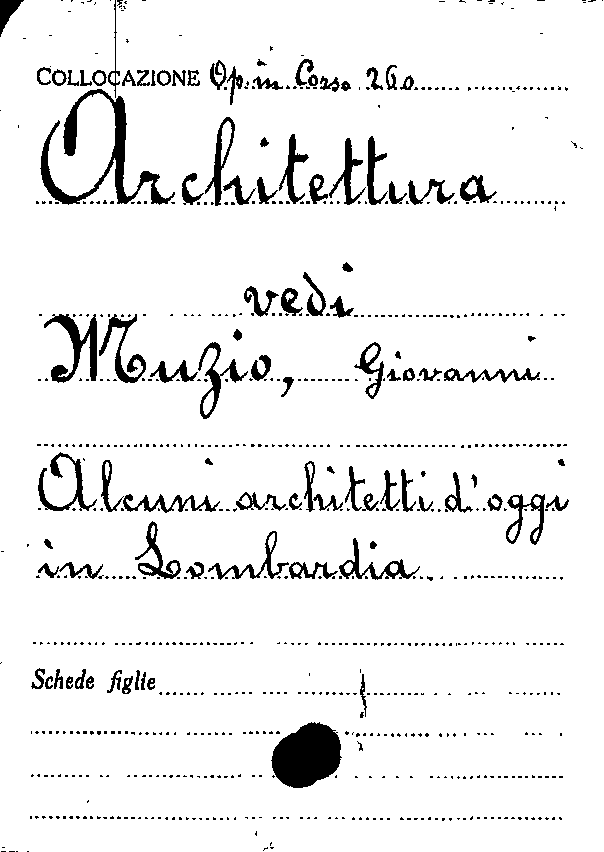 COLLOCAZIONE Op. in Corso 260
Architettura
vedi
Muzio, Giovanni
Alcuni architetti d'oggi
in Lombardia.
Schede figlie